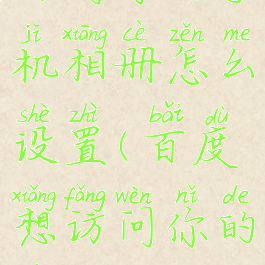 jī xiàng cè zěn me
机相册怎么
shè zhì bǎi dù
设置(百度
xiǎng fǎng wèn nǐ de
想访问你的